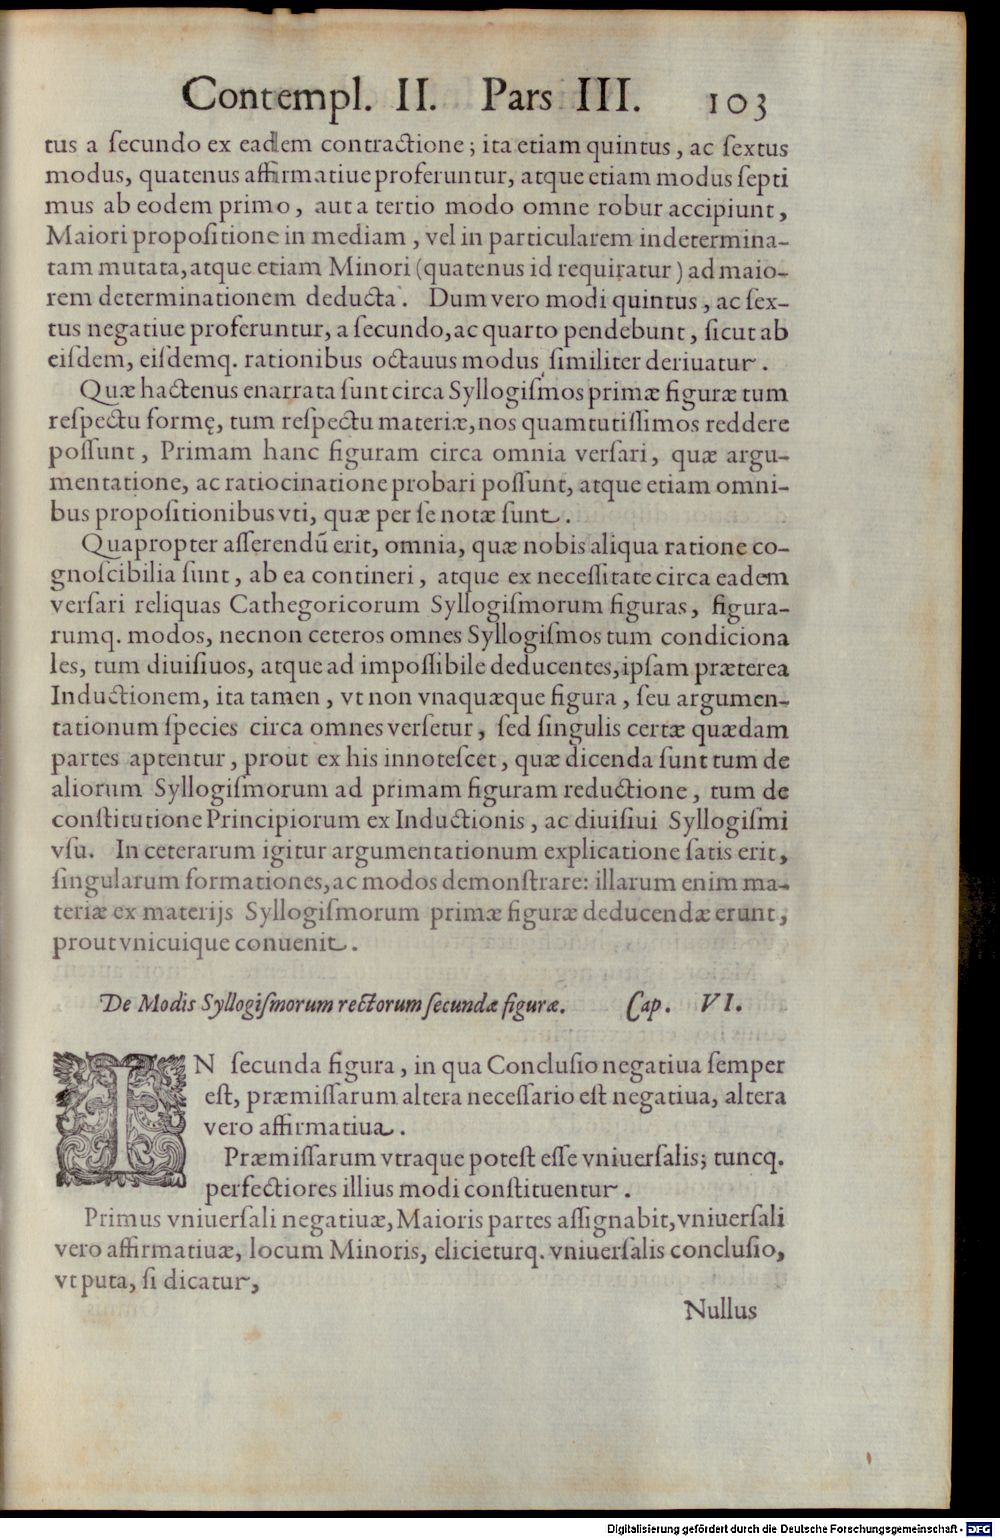 Contempl. II. Pars III. 103
tus a ſecundo ex eadem contractione; ita etiam quintus, ac ſextus
modus, quatenus affirmatiue proferuntur, atque etiam modus ſepti
mus ab eodem primo, aut a tertio modo omne robur accipiunt,
Maiori propoſitione in mediam, vel in particularem indetermina-
tam mutata, atque etiam Minori (quatenus id requiratur) ad maio-
rem determinationem deducta. Dum vero modi quintus, ac ſex-
tus negatiue proferuntur, a ſecundo, ac quarto pendebunt, ſicut ab
eiſdem, eiſdemq. rationibus octauus modus ſimiliter deriuatur.
Quæ hactenus enarrata ſunt circa Syllogiſmos primæ figuræ tum
reſpectu formę, tum reſpectu materiæ, nos quamtutiſſimos reddere
poſſunt, Primam hanc figuram circa omnia verſari, quæ argu-
mentatione, ac ratiocinatione probari poſſunt, atque etiam omni-
bus propoſitionibus vti, quæ per ſe notæ ſunt.
Quapropter aſſerendũ erit, omnia, quæ nobis aliqua ratione co-
gnoſcibilia ſunt, ab ea contineri, atque ex neceſſitate circa eadem
verſari reliquas Cathegoricorum Syllogiſmorum figuras, figura-
rumq. modos, necnon ceteros omnes Syllogiſmos tum condiciona
les, tum diuiſiuos, atque ad impoſſibile deducentes, ipſam præterea
Inductionem, ita tamen, vt non vnaquæque figura, ſeu argumen-
tationum ſpecies circa omnes verſetur, ſed ſingulis certæ quædam
partes aptentur, prout ex his innoteſcet, quæ dicenda ſunt tum de
aliorum Syllogiſmorum ad primam figuram reductione, tum de
conſtitutione Principiorum ex Inductionis, ac diuiſiui Syllogiſmi
vſu. In ceterarum igitur argumentationum explicatione ſatis erit,
ſingularum formationes, ac modos demonſtrare: illarum enim ma-
teriæ ex materijs Syllogiſmorum primæ figuræ deducendæ erunt,
prout vnicuique conuenit.
De Modis Syllogiſmorum rectorum ſecundæ figuræ. Cap. VI.
IN ſecunda figura, in qua Concluſio negatiua ſemper
eſt, præmiſſarum altera neceſſario eſt negatiua, altera
vero affirmatiua.
Præmiſſarum vtraque poteſt eſſe vniuerſalis; tuncq.
perfectiores illius modi conſtituentur.
Primus vniuerſali negatiuæ, Maioris partes aſſignabit, vniuerſali
vero affirmatiuæ, locum Minoris, elicieturq. vniuerſalis concluſio,
vt puta, ſi dicatur,
Nullus
Digitalisierung gefördert durch die Deutsche Forschungsgemeinschaft - DFG